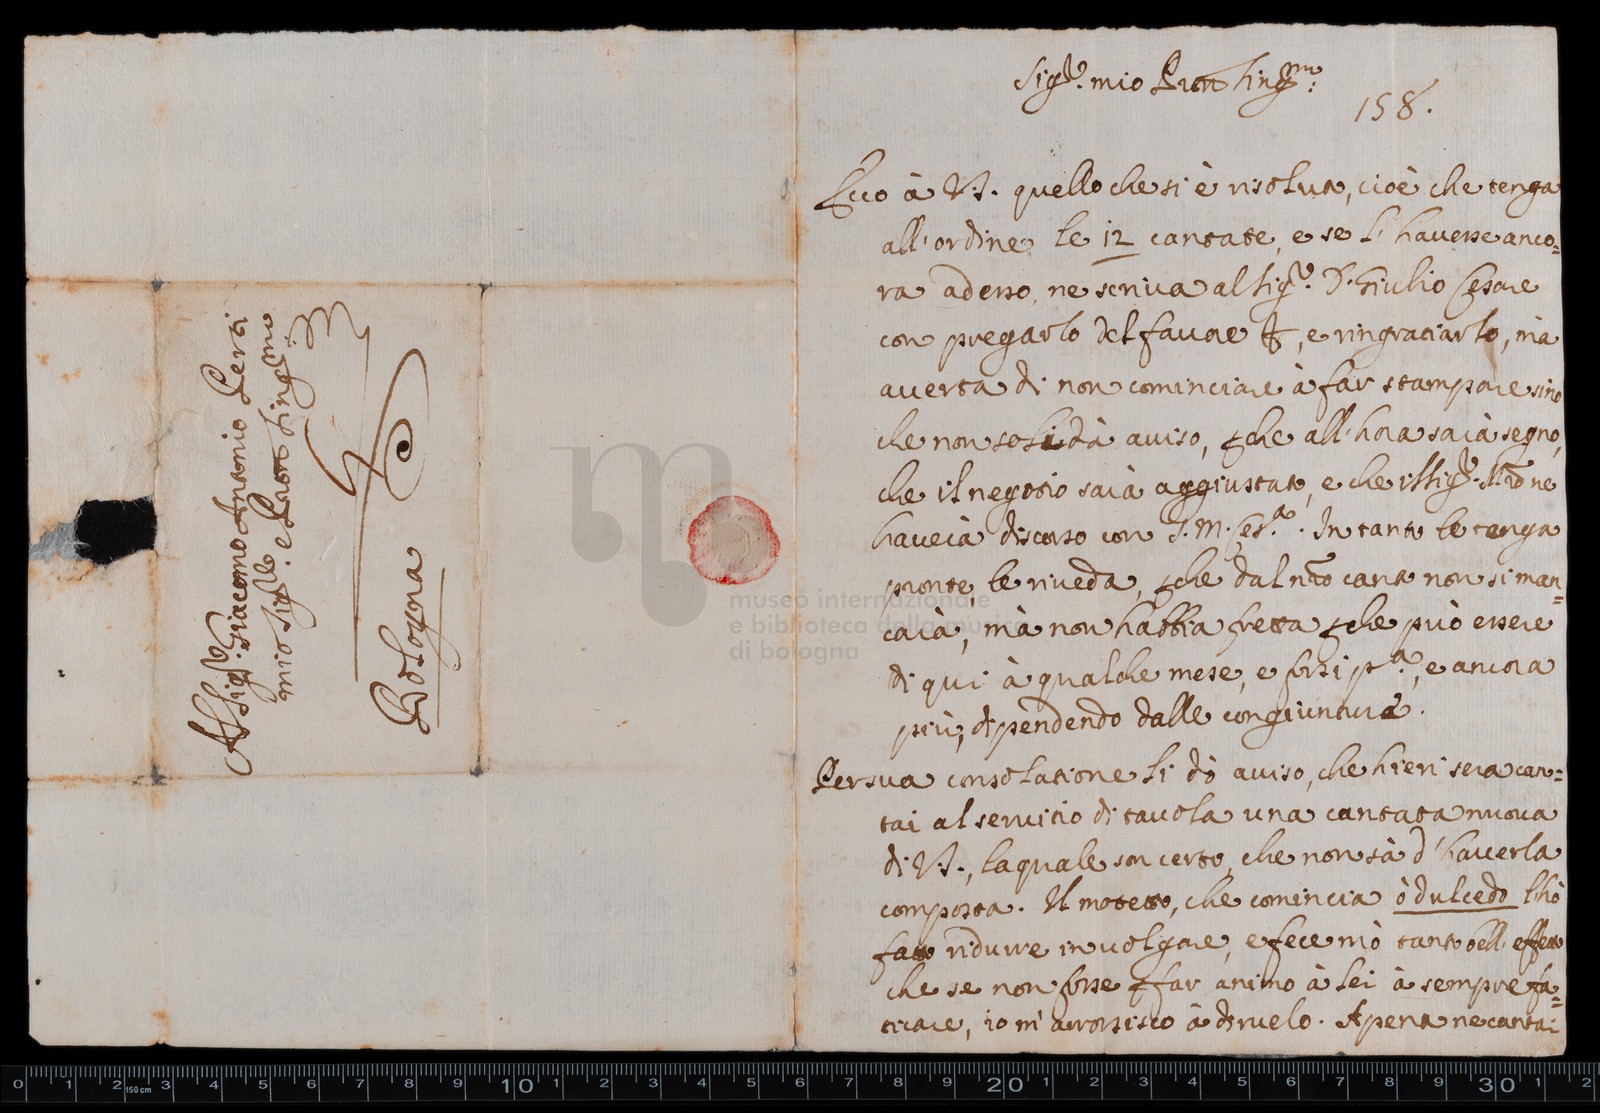 Al Sig.re Giacomo Antonio Perti
mio Sig.re e Pron Sing.mo
Bologna
museo internazionale
e biblioteca della musica
di bologna
Sig.re mio Pron Sing.mo
158.
Ecco à V.S. quello che si è risoluto, cioè che tenga
all'ordine le 12 cantate, e se l'havesse anco=
ra adesso, ne scriva al Sig.re D. Giulio Cesare
con pregarlo del favore &, e ringratiarlo, mà
averta di non cominciare à far stampare sino
che non se li dà aviso, perche all'hora sarà segno,
che il negotio sarà aggiustato, e che il Sig.re ne
haverà discorso con S.M. Ces.a. In tanto le tenga
pronte, le riveda, perche dal nro canto non si man=
carà, mà non habbia fretta perche può essere
di qui à qualche mese, e forsi pa, e ancora
più, dipendendo dalle congiunture.
Per sua consolatione li dò aviso, che hieri sera can=
tai al servitio di tavola una cantata nuova
di V.S., la quale son certo, che non sà d'haverla
composta. Il motetto, che comincia ò dulcedo l'hò
fatto ridurre in volgare, e fece mò tanto bell'effetto
che se non fosse per far animo à lei à sempre fa=
ticare, io m'arrossisco à dirvelo. Apena ne cantai
0 1 2 3 4 5 6 7 8 9 10 1 2 3 4 5 6 7 8 9 20 1 2 3 4 5 6 7 8 9 30 1 2
150 cm